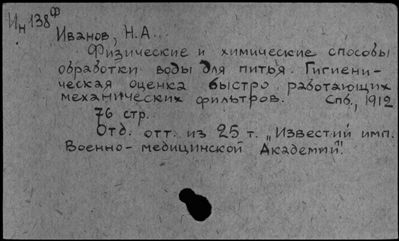 Ин 138ф
Иванов, Н.А...
Физические и химические способы
обработки воды для питья. Гигиени-
ческая оценка быстро работающих
механических фильтров. Спб., 1912
76 стр.
Отд. отт. из 25 т. „Известий имп.
Военно-медицинской Академии".